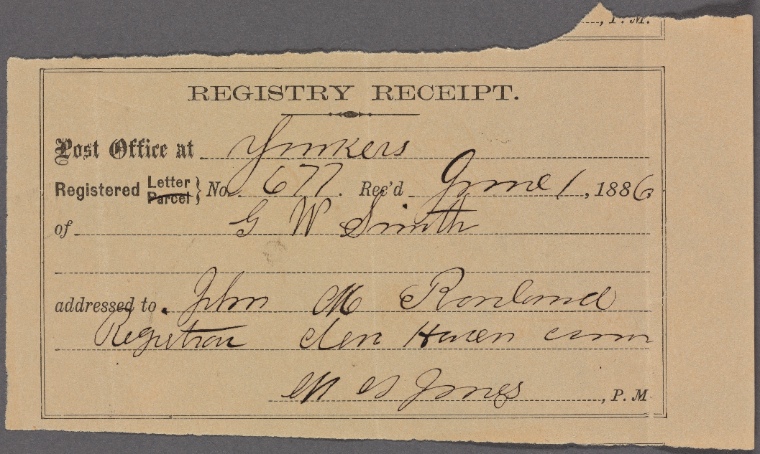 , P. M.
REGISTRY RECEIPT.
Post Office at Yonkers
Registered Letter Parcel } No. 677. Rec'd June 1, 1886
of G W Smith
addressed to John M Rowland
Registrar New Haven Conn
Jones, P. M